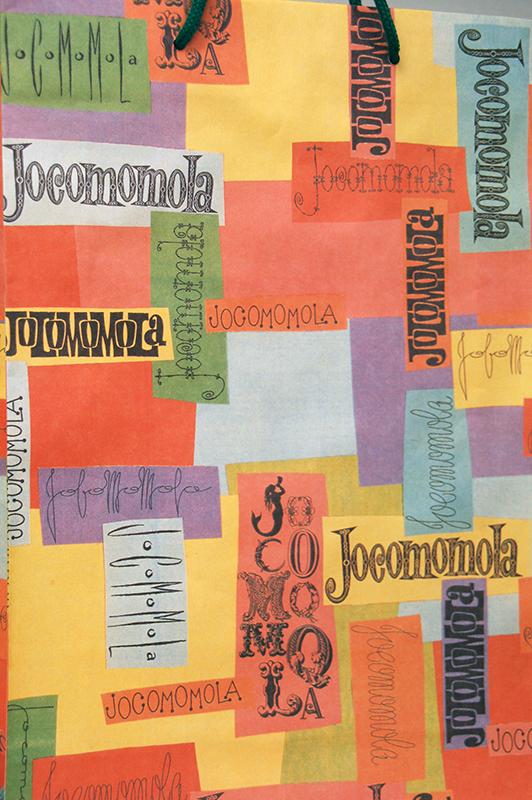 JoCoMoMoLa
QLA
JOCOMOMOLA
Jocomomola
Jocomomola
Jocomomola
Jocomomola
JOCOMOMOLA
JOCOMOMOLA
JOCOMOMOLA
JOCOMOMOLA
Jocomomola
JocoMoMola
JoCoMoMoLa
JO
CO
MO
MO
LA
Jocomomola
Jocomomola
JOCOMOMOLA
JOCOMOMOLA
JOCO
Jocomomola